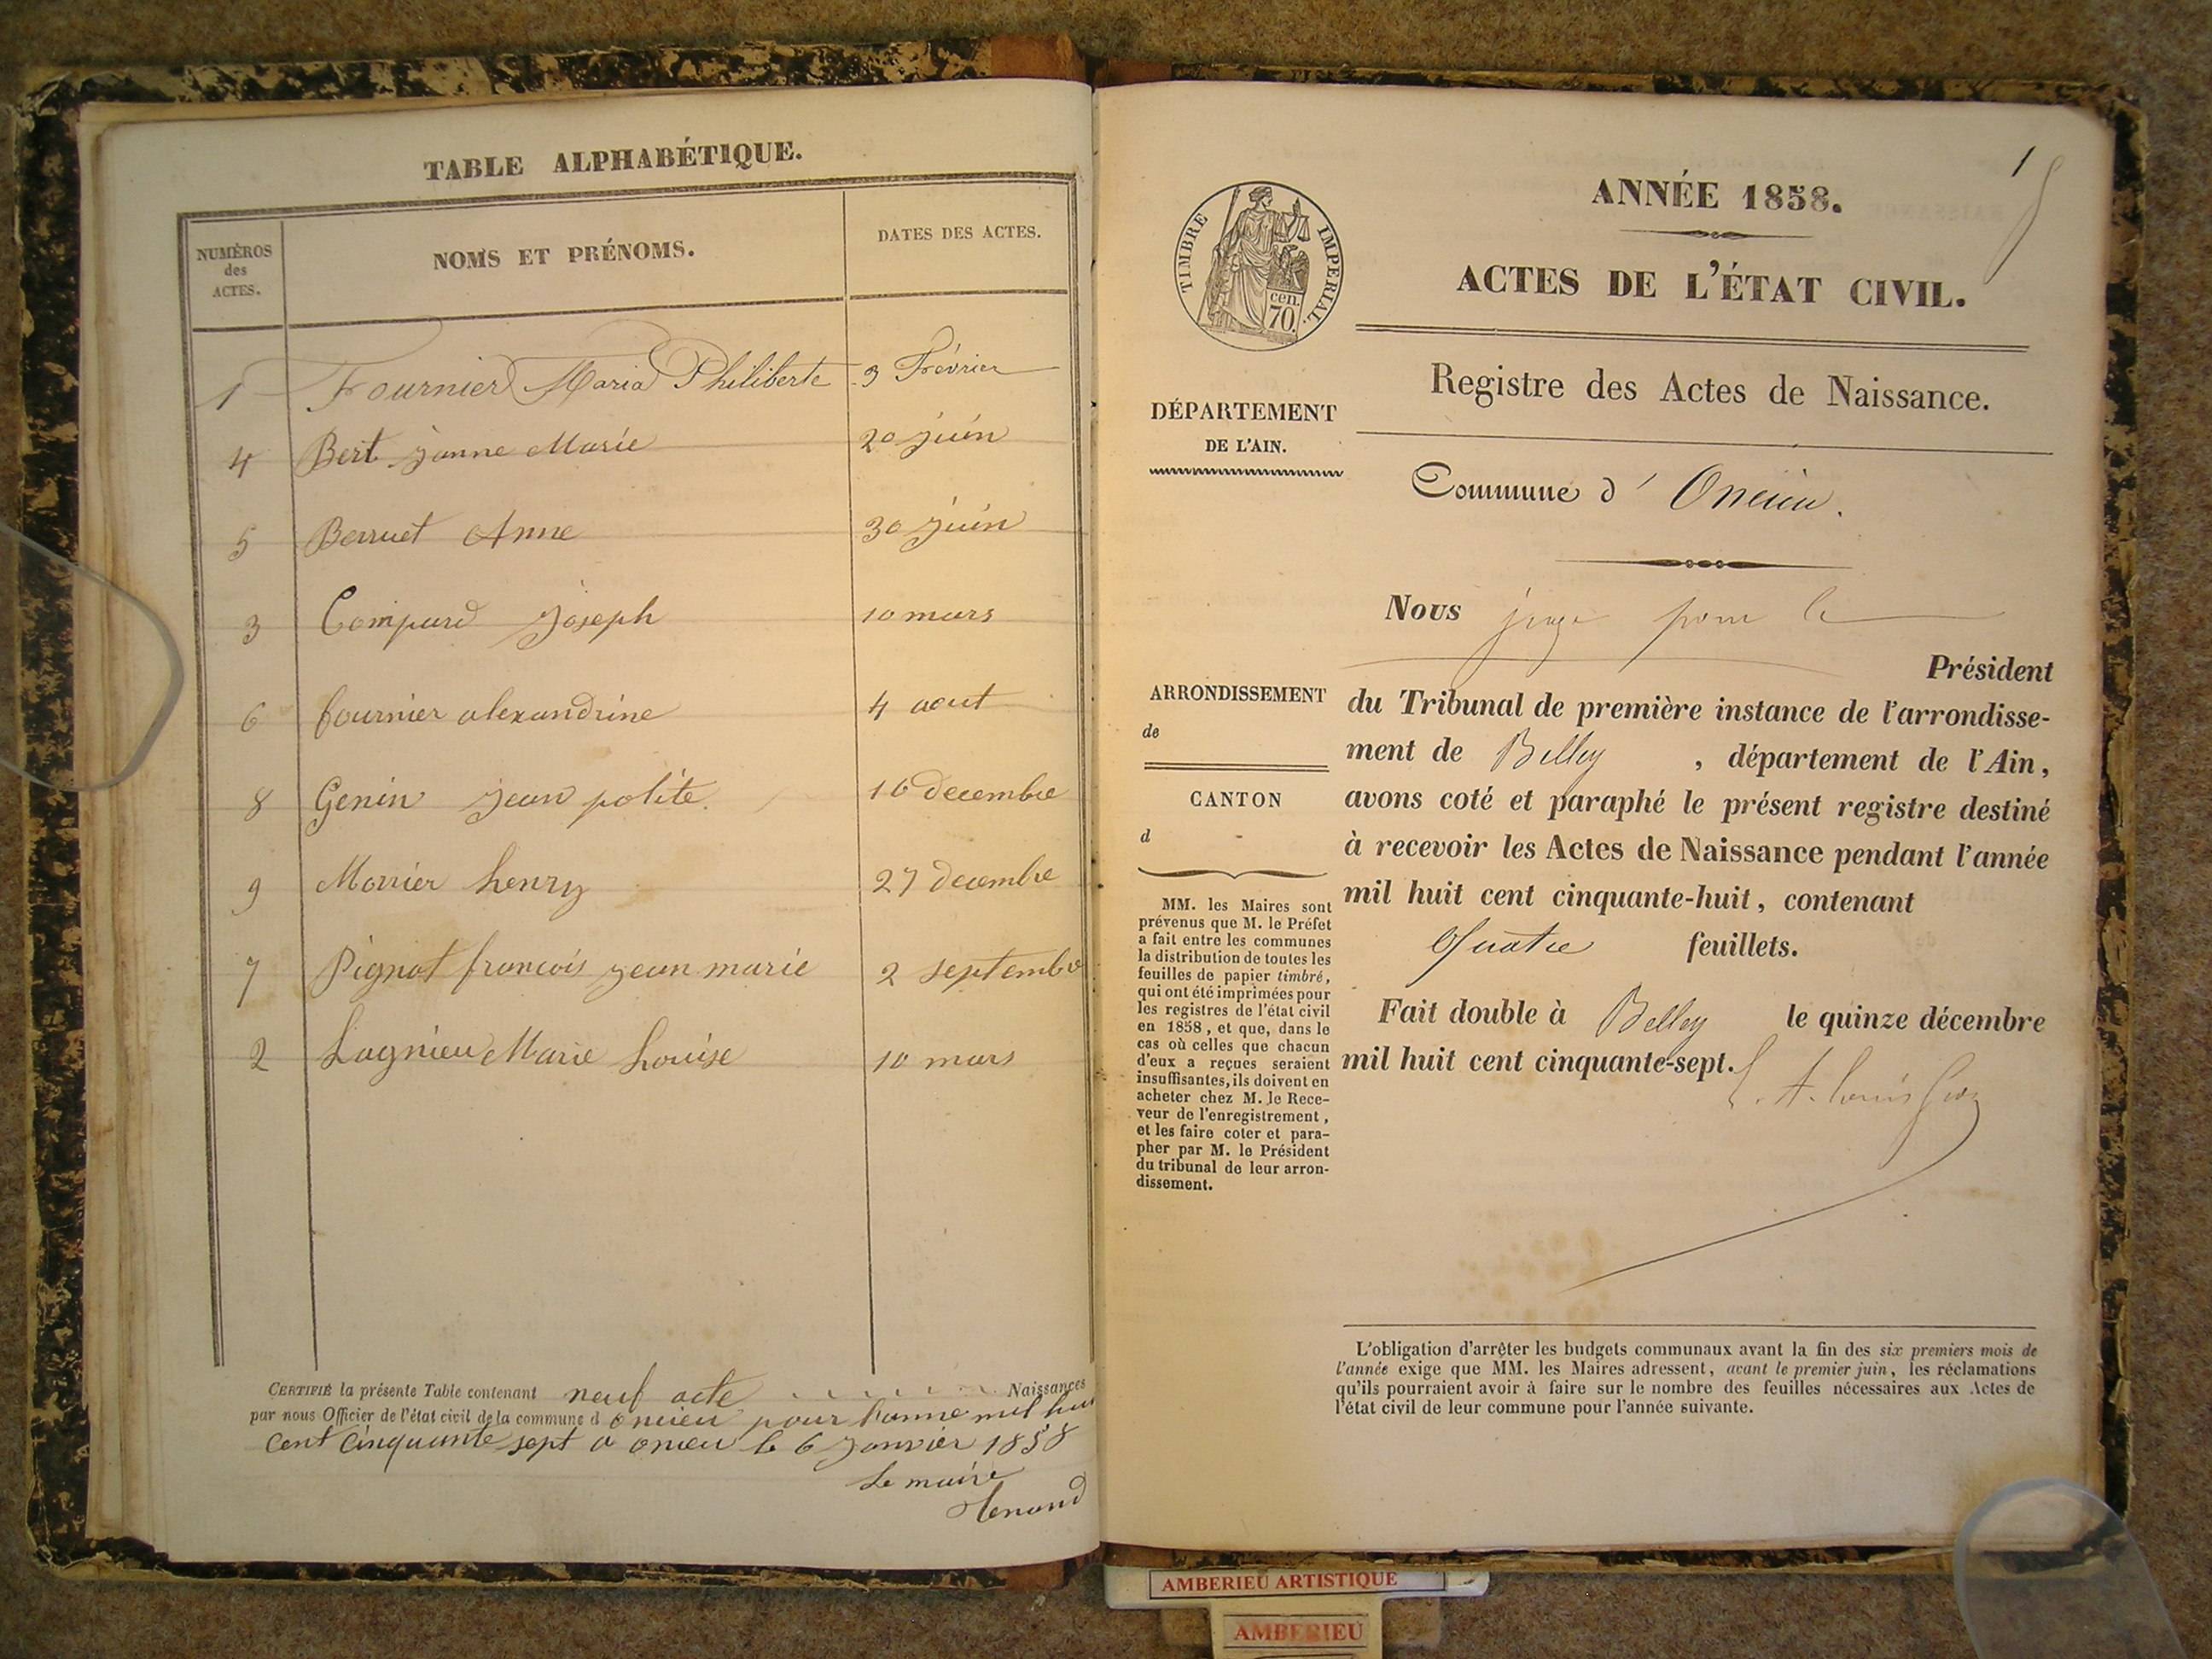 TABLE ALPHABÉTIQUE.
NUMÉROS des ACTES.
NOMS ET PRÉNOMS.
DATES DES ACTES.
1 Fournier Maria Philiberte 3 Février
4 Bert janne Marie 20 juin
5 Berruet Anne 30 juin
3 Compard Joseph 10 mars
6 fournier alexandrine 4 aout
8 Genin jean polite. 16 decembre
9 Morrier henry 27 decembre
7 Pignat francois jean marie 2 septembre
2 Lagnieu Marie Louise 10 mars
CERTIFIÉ la présente Table contenant neuf acte Naissances
par nous Officier de l'état civil de la commune d oncieu pour lanne mil huit
cent cinquante sept a oncieu le 6 janvier 1858
Le maire
1
ANNÉE 1858.
ACTES DE L'ÉTAT CIVIL.
TIMBRE IMPERIAL.
cen.
70.
Registre des Actes de Naissance.
DÉPARTEMENT
DE L'AIN.
Commune d' Oncieu.
Nous juge pour le
Président
ARRONDISSEMENT
de
CANTON
d
du Tribunal de première instance de l'arrondisse-
ment de Belley , département de l'Ain,
avons coté et paraphé le présent registre destiné
à recevoir les Actes de Naissance pendant l'année
mil huit cent cinquante-huit, contenant
Quatre feuillets.
Fait double à Belley le quinze décembre
mil huit cent cinquante-sept.
MM. les Maires sont
prévenus que M. le Préfet
a fait entre les communes
la distribution de toutes les
feuilles de papier timbré,
qui ont été imprimées pour
les registres de l'état civil
en 1858, et que, dans le
cas où celles que chacun
d'eux a reçues seraient
insuffisantes, ils doivent en
acheter chez M. le Rece-
veur de l'enregistrement,
et les faire coter et para-
pher par M. le Président
du tribunal de leur arron-
dissement.
L'obligation d'arrêter les budgets communaux avant la fin des six premiers mois de
l'année exige que MM. les Maires adressent, avant le premier juin, les réclamations
qu'ils pourraient avoir à faire sur le nombre des feuilles nécessaires aux Actes de
l'état civil de leur commune pour l'année suivante.
AMBERIEU ARTISTIQUE
AMBERIEU